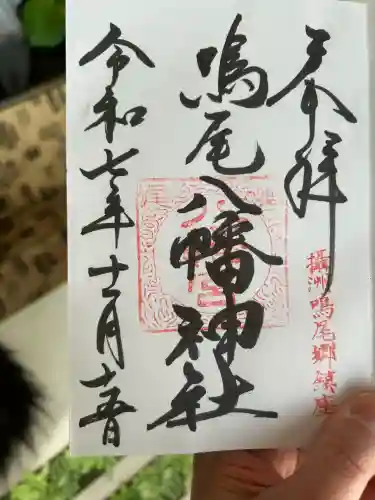 奉拝
攝洲鳴尾郷鎮座
鳴尾八幡神社
令和七年十二月十五日